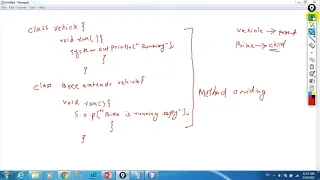 Untitled - Notepad
class vehicle {
void run() {
System.out.println("Running");
}
}
class Bike extends vehicle {
void run() {
S.o.p("Bike is running safly");
}
}
vehicle → parent
Bike → child
Method overiding